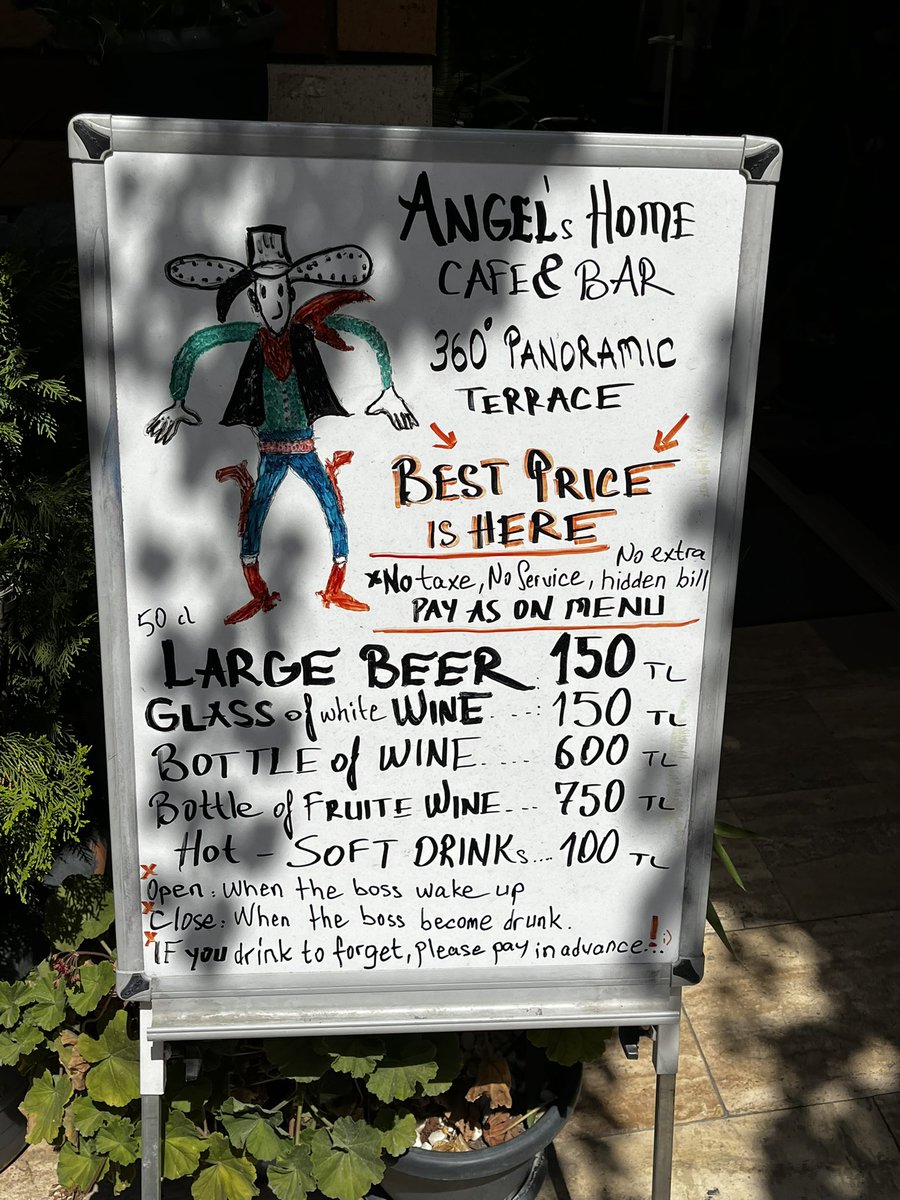 ANGEL's HOME
CAFE & BAR
360° PANORAMIC
TERRACE
BEST PRICE
IS HERE
No extra
xNo taxe, No Service, hidden bill
PAY AS ON MENU
50 cl
LARGE BEER 150 TL
GLASS of white WINE ....: 150 TL
BOTTLE of WINE..... 600 TL
Bottle of FRUITE WINE... 750 TL
Hot - SOFT DRINKs... 100 TL
x Open: When the boss wake up
x Close: When the boss become drunk.
x IF you drink to forget, please pay in advance..! :)